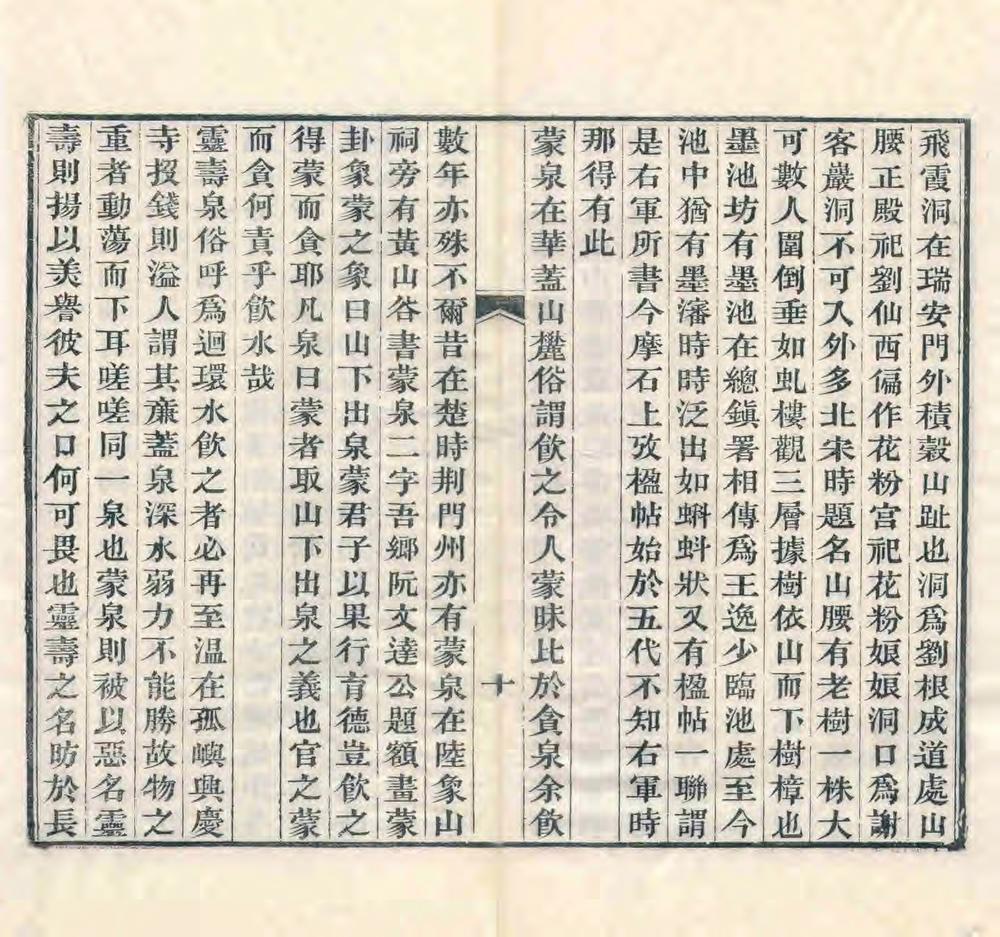 飛霞洞在瑞安門外積穀山趾也洞爲劉根成道處山
腰正殿祀劉仙西偏作花粉宮祀花粉娘娘洞口爲謝
客巖洞不可入外多北宋時題名山腰有老樹一株大
可數人圍倒垂如虬樓觀三層據樹依山而下樹樟也
墨池坊有墨池在總鎭署相傳爲王逸少臨池處至今
池中猶有墨瀋時時泛出如蝌蚪狀又有楹帖一聯謂
是右軍所書今摩石上攷楹帖始於五代不知右軍時
那得有此
蒙泉在華蓋山麓俗謂飮之令人蒙昧比於貪泉余飮
十
數年亦殊不爾昔在楚時荆門州亦有蒙泉在陸象山
祠旁有黃山谷書蒙泉二字吾鄉阮文達公題額畫蒙
卦象蒙之象曰山下出泉蒙君子以果行育德豈飮之
得蒙而貪耶凡泉曰蒙者取山下出泉之義也官之蒙
而貪何責乎飮水哉
靈壽泉俗呼爲迴環水飮之者必再至温在孤嶼興慶
寺投錢則溢人謂其亷蓋泉深水弱力不能勝故物之
重者動蕩而下耳嗟嗟同一泉也蒙泉則被以惡名靈
壽則揚以美譽彼夫之口何可畏也靈壽之名昉於長